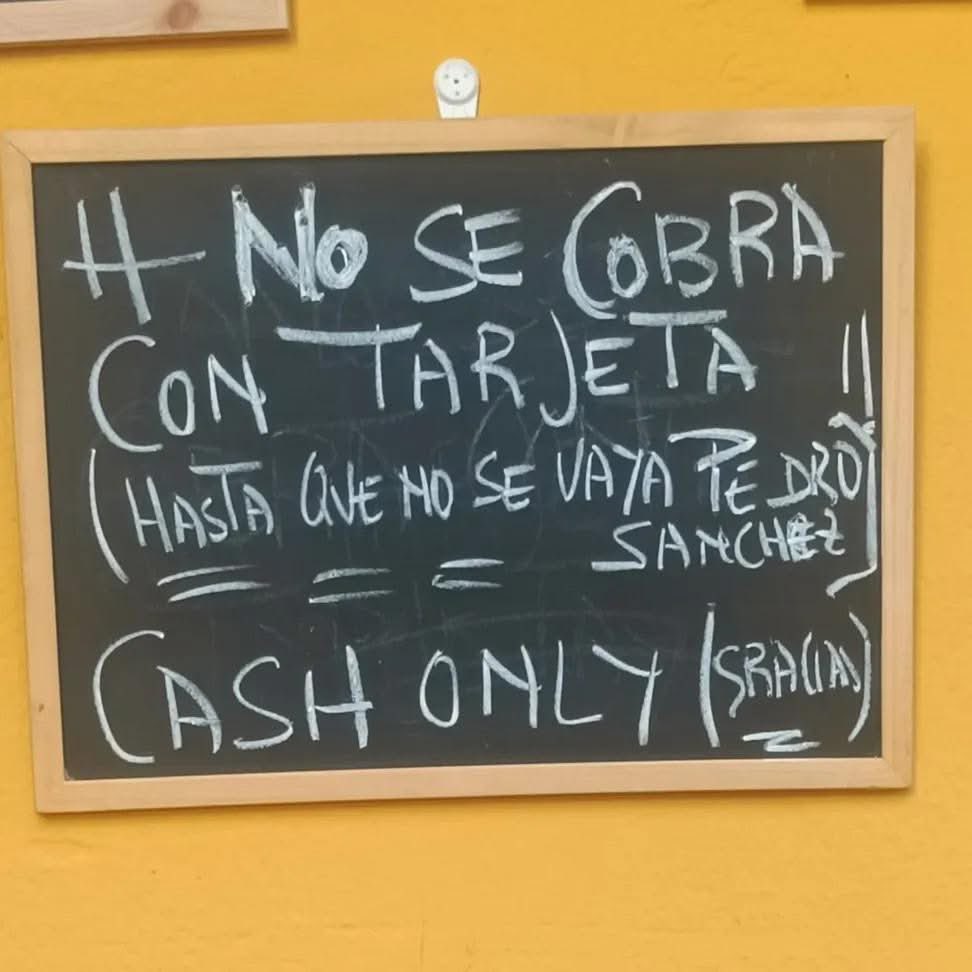 # NO SE COBRA
CON TARJETA !!
(HASTA QUE NO SE VAYA PEDRO
SANCHEZ)
CASH ONLY (GRACIAS)